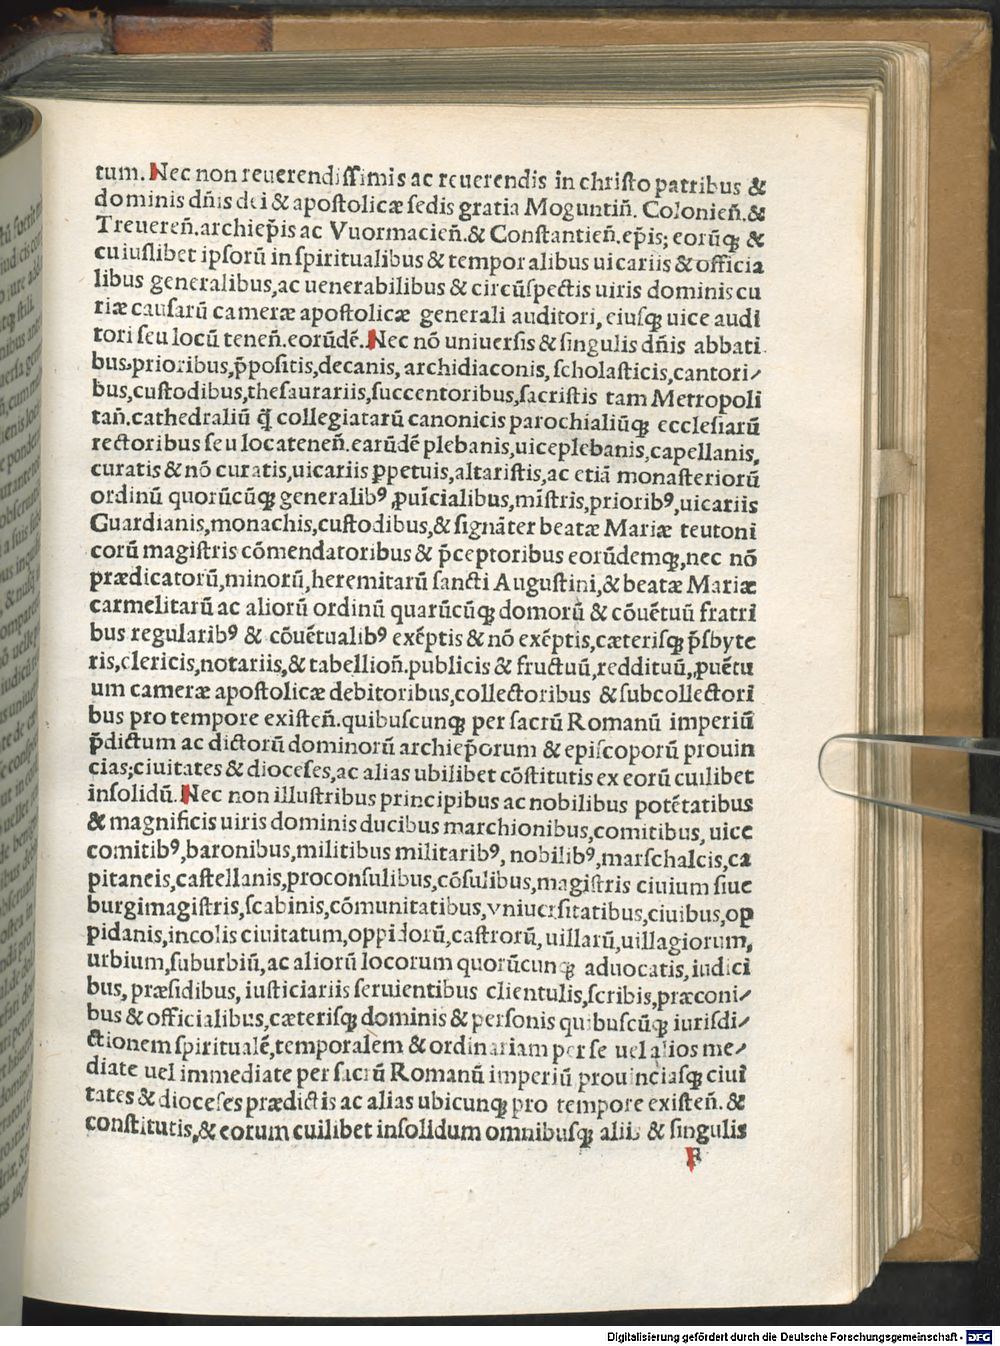 tum. Nec non reuerendissimis ac reuerendis in christo patribus &
dominis dñis dei & apostolicæ sedis gratia Moguntiñ. Colonieñ.&
Treuereñ.archiep̃is ac Vuormacieñ.& Constantieñ.ep̃is; eorũq; &
cuiuslibet ipsorũ in spiritualibus & temporalibus uicariis & officia
libus generalibus,ac uenerabilibus & circũspectis uiris dominis cu
riæ causarũ cameræ apostolicæ generali auditori, eiusq; uice audi
tori seu locũ teneñ.eorũdẽ. Nec nõ uniuersis & singulis dñis abbati
bus,prioribus,p̃positis,decanis, archidiaconis, scholasticis,cantori/
bus,custodibus,thesaurariis,succentoribus,sacristis tam Metropoli
tañ.cathedraliũ q̃ collegiatarũ canonicis parochialiũq; ecclesiarũ
rectoribus seu locateneñ.earũdẽ plebanis,uiceplebanis,capellanis,
curatis & nõ curatis,uicariis ꝑpetuis,altaristis,ac etiã monasteriorũ
ordinũ quorũcũq; generalibꝰ ꝓuĩcialibus,mĩstris,prioribꝰ,uicariis
Guardianis,monachis,custodibus,& signãter beatæ Mariæ teutoni
corũ magistris cõmendatoribus & p̃ceptoribus eorũdemq;,nec nõ
prædicatorũ,minorũ,heremitarũ sancti Augustini,& beatæ Mariæ
carmelitarũ ac aliorũ ordinũ quarũcũq; domorũ & cõuẽtuũ fratri
bus regularibꝰ & cõuẽtualibꝰ exẽptis & nõ exẽptis,cæterisq; p̃sbyte
ris,clericis,notariis,& tabellioñ.publicis & fructuũ,reddituũ,ꝓuẽtu
um cameræ apostolicæ debitoribus,collectoribus & subcollectori
bus pro tempore existeñ.quibuscunq; per sacrũ Romanũ imperiũ
p̃dictum ac dictorũ dominorũ archiep̃orum & episcoporũ prouin
cias;ciuitates & dioceses,ac alias ubilibet cõstitutis ex eorũ cuilibet
insolidũ. Nec non illustribus principibus ac nobilibus potẽtatibus
& magnificis uiris dominis ducibus marchionibus,comitibus, uice
comitibꝰ,baronibus,militibus militaribꝰ, nobilibꝰ,marschalcis,ca
pitaneis,castellanis,proconsulibus,cõsulibus,magistris ciuium siue
burgimagistris,scabinis,cõmunitatibus,vniuersitatibus,ciuibus,op
pidanis,incolis ciuitatum,oppidorũ,castrorũ,uillarũ,uillagiorum,
urbium,suburbiũ,ac aliorũ locorum quorũcunq; aduocatis,iudici
bus, præsidibus, iusticiariis seruientibus clientulis,scribis,præconi/
bus & officialibus,cæterisq; dominis & personis quibuscũq; iurisdi/
ctionem spiritualẽ,temporalem & ordinariam per se uel alios me/
diate uel immediate per sacrũ Romanũ imperiũ prouinciasq; ciui
tates & dioceses prædictis ac alias ubicunq; pro tempore existeñ. &
constitutis,& eorum cuilibet insolidum omnibusq; aliis & singulis
Digitalisierung gefördert durch die Deutsche Forschungsgemeinschaft - DFG